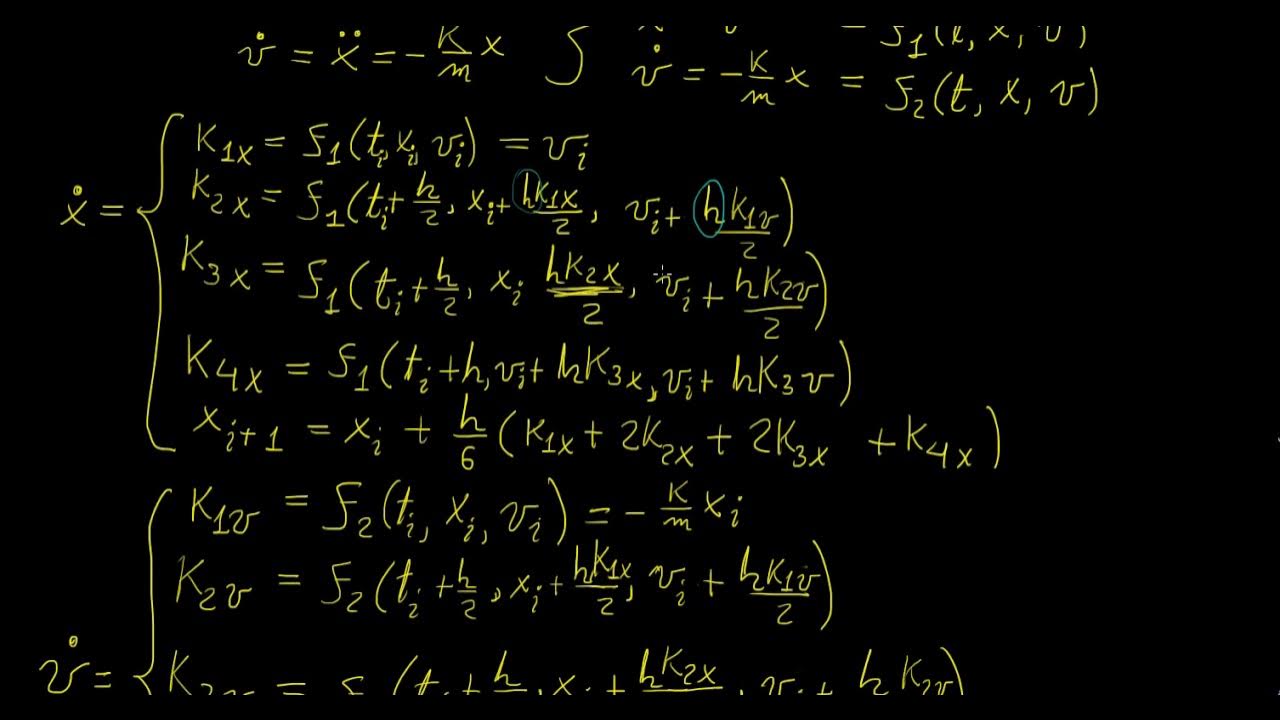 v̇ = ẍ = -K/m x ∫ v̇ = -K/m x = f₁(t, x, v)
= f₂(t, x, v)
K₁ₓ = f₁(tᵢ, xᵢ, vᵢ) = vᵢ
K₂ₓ = f₁(tᵢ + h/2, xᵢ + hK₁ₓ/2, vᵢ + hK₁ᵥ/2)
ẋ = {
K₃ₓ = f₁(tᵢ + h/2, xᵢ hK₂ₓ/2, vᵢ + hK₂ᵥ/2)
K₄ₓ = f₁(tᵢ + h, vᵢ + hK₃ₓ, vᵢ + hK₃v)
xᵢ₊₁ = xᵢ + h/6 (K₁ₓ + 2K₂ₓ + 2K₃ₓ + K₄ₓ)
K₁ᵥ = f₂(tᵢ, xᵢ, vᵢ) = -K/m xᵢ
K₂ᵥ = f₂(tᵢ + h/2, xᵢ + hK₁ₓ/2, vᵢ + hK₁ᵥ/2)
v̇ = {